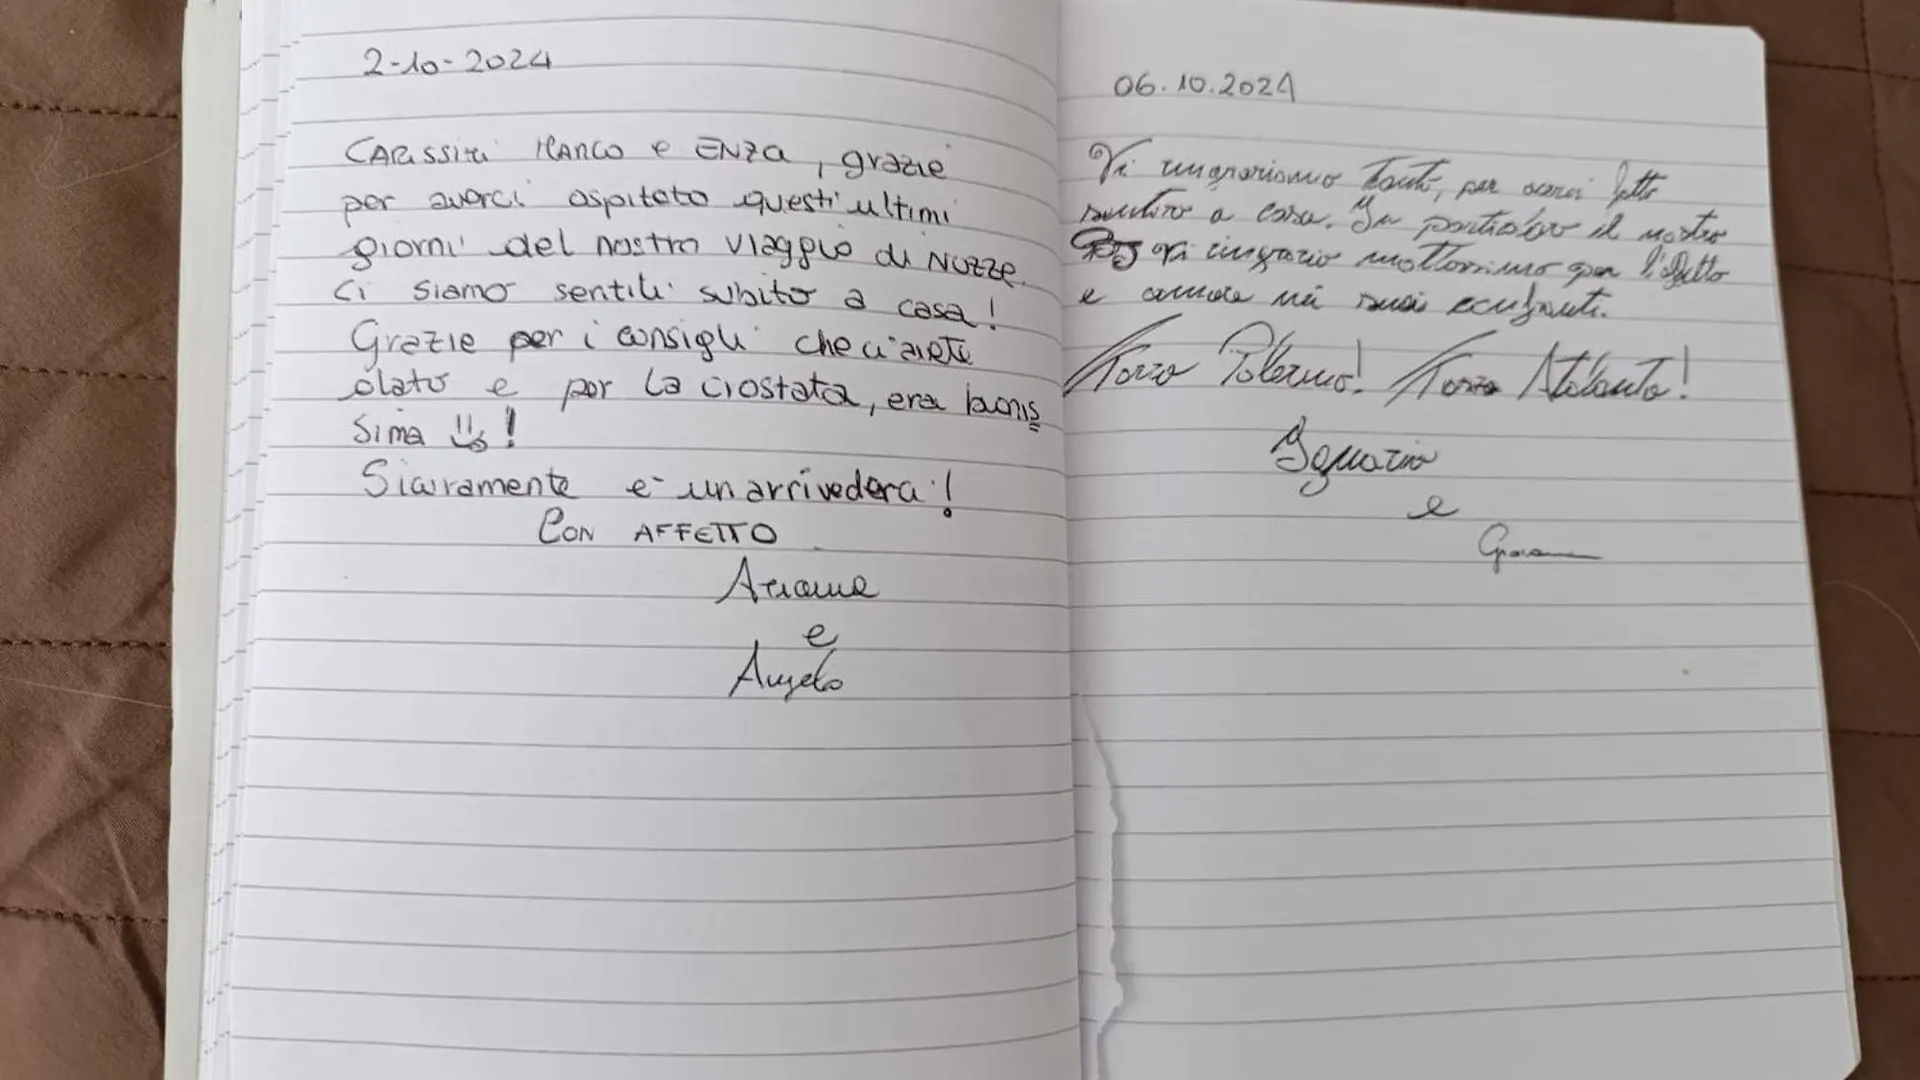 2-10-2024
CARISSIMI MARCO e ENZA, grazie
per averci ospitato questi ultimi
giorni del nostro viaggio di NOZZE.
Ci siamo sentiti subito a casa!
Grazie per i consigli che ci avete
dato e per la crostata, era bonis
sima !
Sicuramente è un arrivederci!
CON AFFETTO
Arianna
e
Angelo
06.10.2024
Vi ringraziamo tanto, per averci fatto
sentire a casa. In particolare il nostro
vi ringrazio moltissimo per l'affetto
e amore nei suoi
Forza Palermo! Forza Atalanta!
Ignazio
e